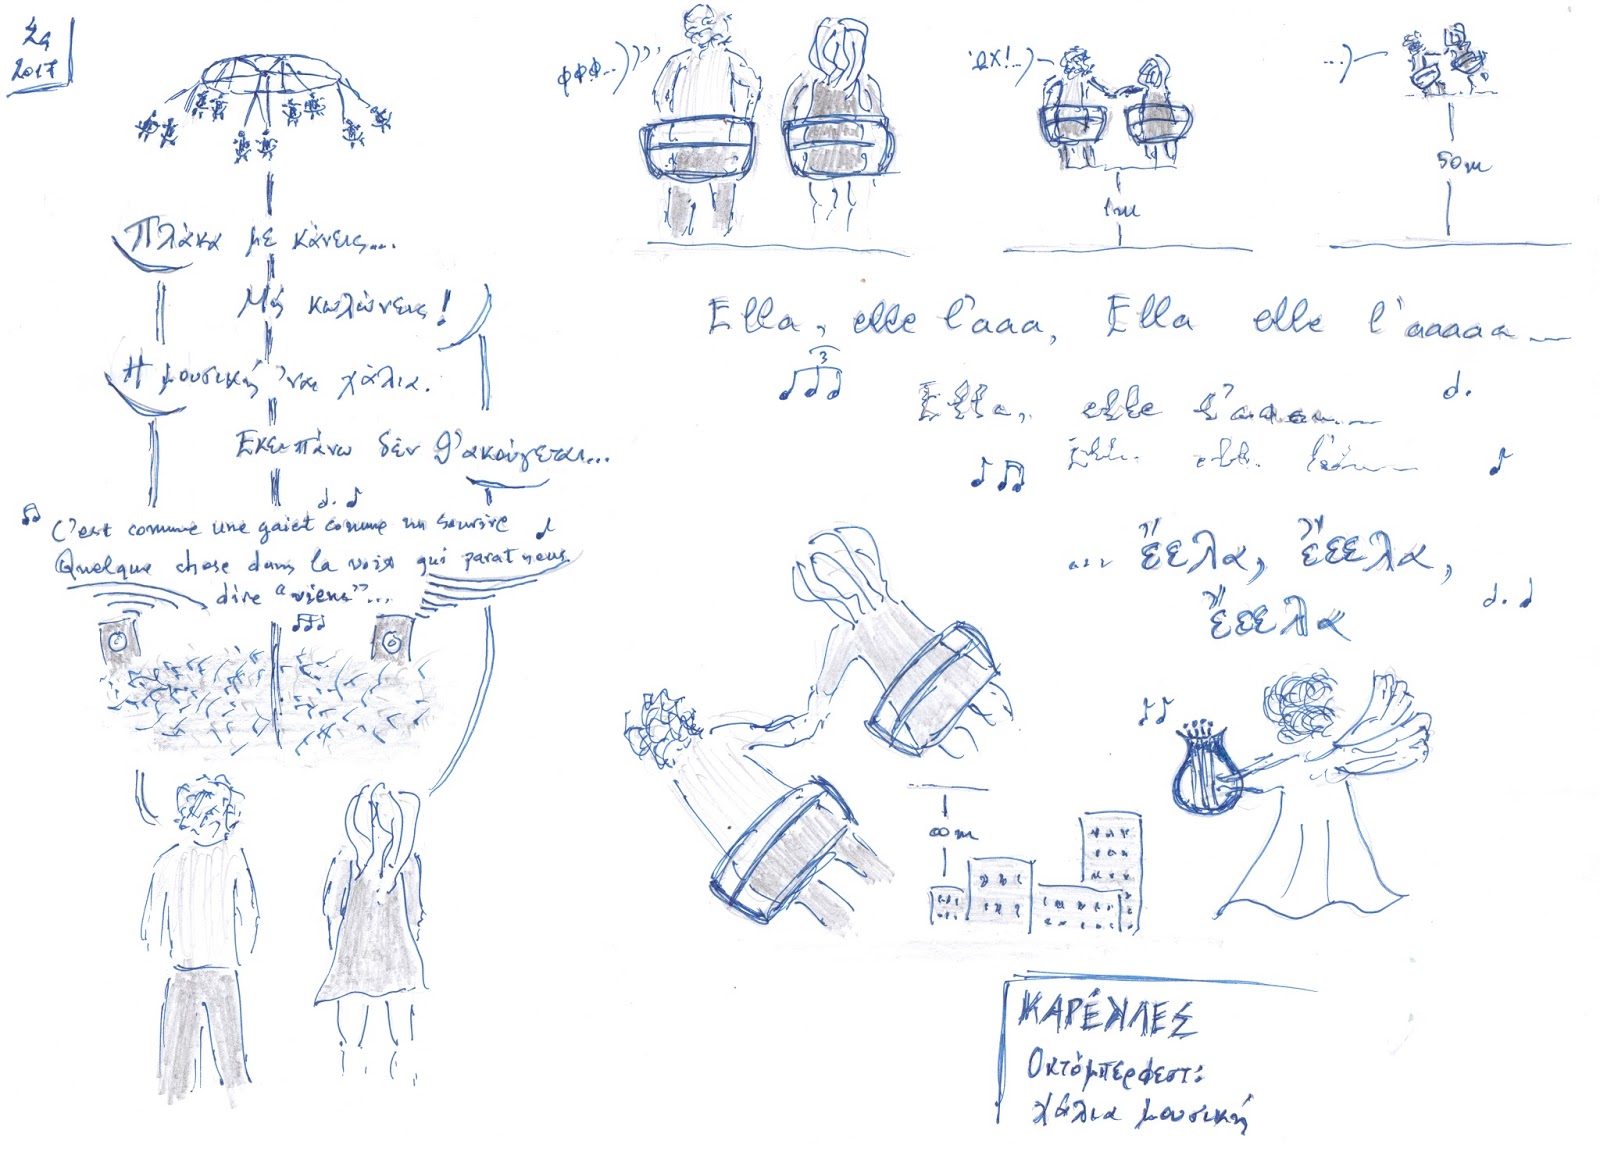 2017
Πλάκα με κάνεις...
Μη κωλώνεις!
Η μουσική 'ναι χάλια.
Εκει πάνω δεν θ'ακούγεται...
C'est comme une gaiet comme un sourire
Quelque chose dans la voix qui parat nous
dire "viens"...
φφφ...)))
'ΩΧ!..)
1m
...)
50m
Ella, elle l'aaa, Ella elle l'aaaaa...
3
Ella, elle l'aaaaa...
... ἔελα, ἔεεελα,
ἔεεελα
∞ m
ΚΑΡΕΚΛΕΣ
Οκτόμπερφεστ:
χάλια μουσική